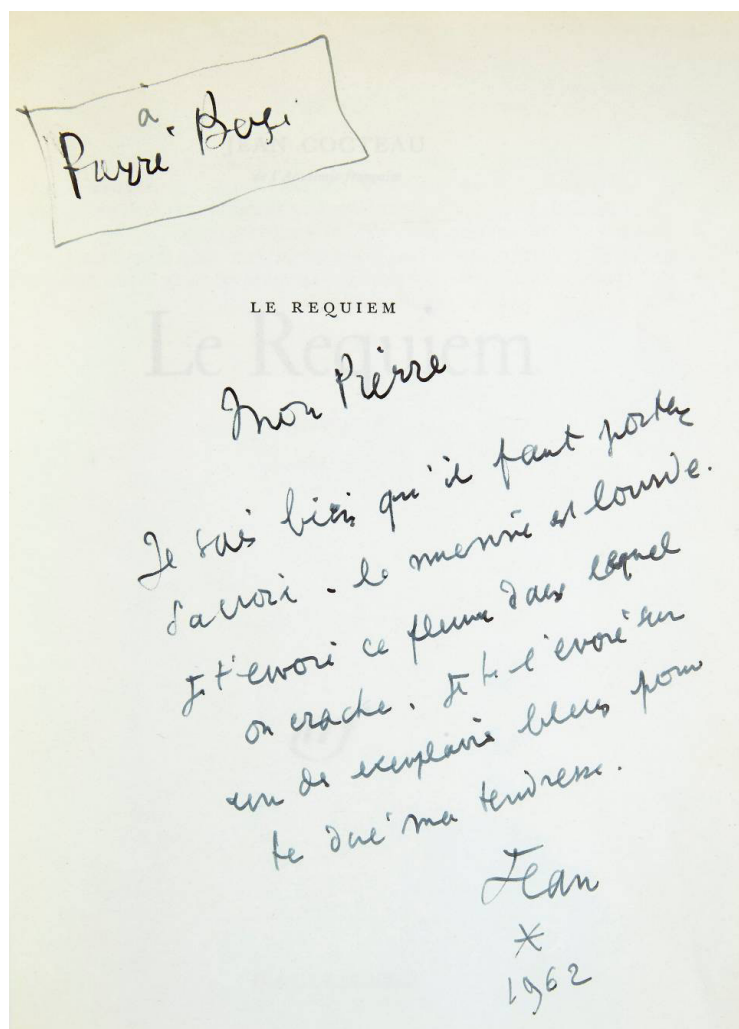 à
Pierre Borel
JEAN COCTEAU
de l'Académie française
LE REQUIEM
Le Requiem
Mon Pierre
Je sais bien qu'il faut porter
sa croix. la mienne est lourde.
Je t'envoie ce fleuve dans lequel
on crache. Je te l'envoie sur
un des exemplaires bleus pour
te dire ma tendresse.
Jean
1962